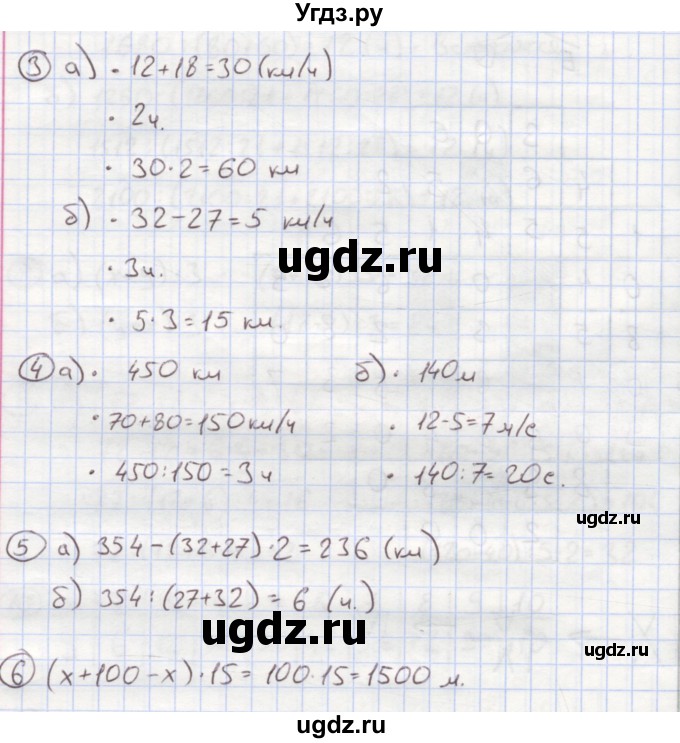 Угдз.ру
③ а) · 12+18=30 (км/ч)
· 2ч.
· 30·2=60 км
б) · 32-27=5 км/ч
ugdz.ru
· 3ч.
· 5·3=15 км.
④ а) · 450 км
· 70+80=150км/ч
· 450:150=3ч
б) · 140м
· 12-5=7м/с
· 140:7=20с.
ugdz.ru
⑤ а) 354-(32+27)·2=236 (км)
б) 354:(27+32)=6 (ч.)
ugdz.ru
ugdz.ru
⑥ (x+100-x)·15=100·15=1500 м.
ugdz.ru